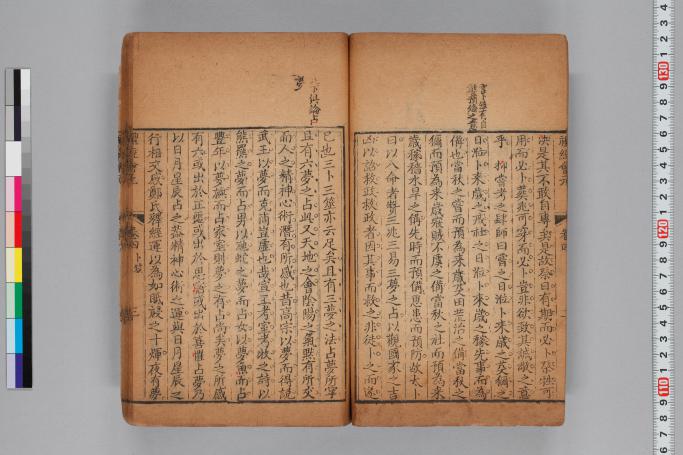 決是其不敢自專
用而必卜葬兆可穿而必卜豈非欲致其誠敬之意
乎抑嘗考之肆師曰嘗之日涖卜來歲之芟獮之
日涖卜來歲之戒社之日涖卜來歲之稼先事而為
備也當秋之嘗而預為來歲芟田荒治之備當秋之
獮而預為來歲寇賊不虞之備當秋之社而預為來
歲稼穡水旱之備先時而預備思患而預防故太卜
曰以八命者贊三兆三易三夢之占以觀國家之吉
凶以詔救政救政者因其事而救之非徒卜之而遂
已也三卜三筮亦云足矣且有三夢之法占夢所掌
且有六夢之占此又天地之會陰陽之氣
而人之精神心術有所感也昔高宗以夢而得說
武王以夢而克商豈虛也哉宣王考室考牧之詩以
熊羆之夢而占男以虺蛇之夢而占女以夢魚而占
豐年以夢旐而占家室則夢之有占尚矣夢之所感
有六或出於正噩或出於思寤或出於喜懼占夢乃
以日月星辰占之蓋精神心術之運與日月星辰之
行相交感鄭氏釋經遂以為如眡祲之十煇夜有夢
卷四
卜筮
三